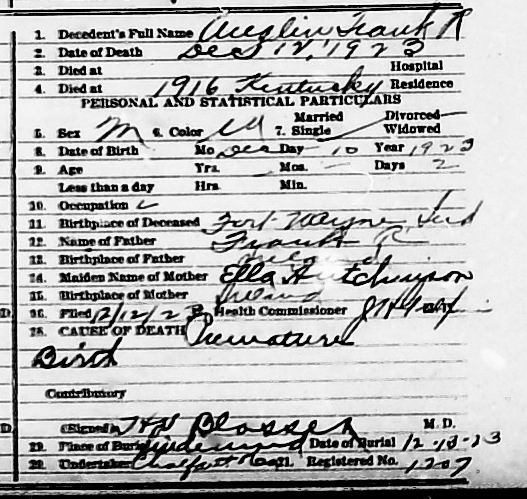 1. Decedent's Full Name Anglin Frank R
2. Date of Death Dec 12, 1923
3. Died at Hospital
4. Died at 1916 Kentucky Residence
PERSONAL AND STATISTICAL PARTICULARS
5. Sex M 6. Color W 7. Married Single Divorced Widowed
8. Date of Birth Mo Dec Day 10 Year 1923
9. Age Yrs. Mos. Days 2
Less than a day Hrs. Min.
10. Occupation
11. Birthplace of Deceased Fort Wayne Ind
12. Name of Father Frank R.
13. Birthplace of Father
14. Maiden Name of Mother Ella Hutchinson
15. Birthplace of Mother
D. 16. Filed 12/12/23 Health Commissioner
18. CAUSE OF DEATH Premature
Birth
Contributory
D. (Signed) Blosser M. D.
19. Place of Burial Lindenwood Date of Burial 12-13-23
20. Undertaker 21. Registered No. 1207